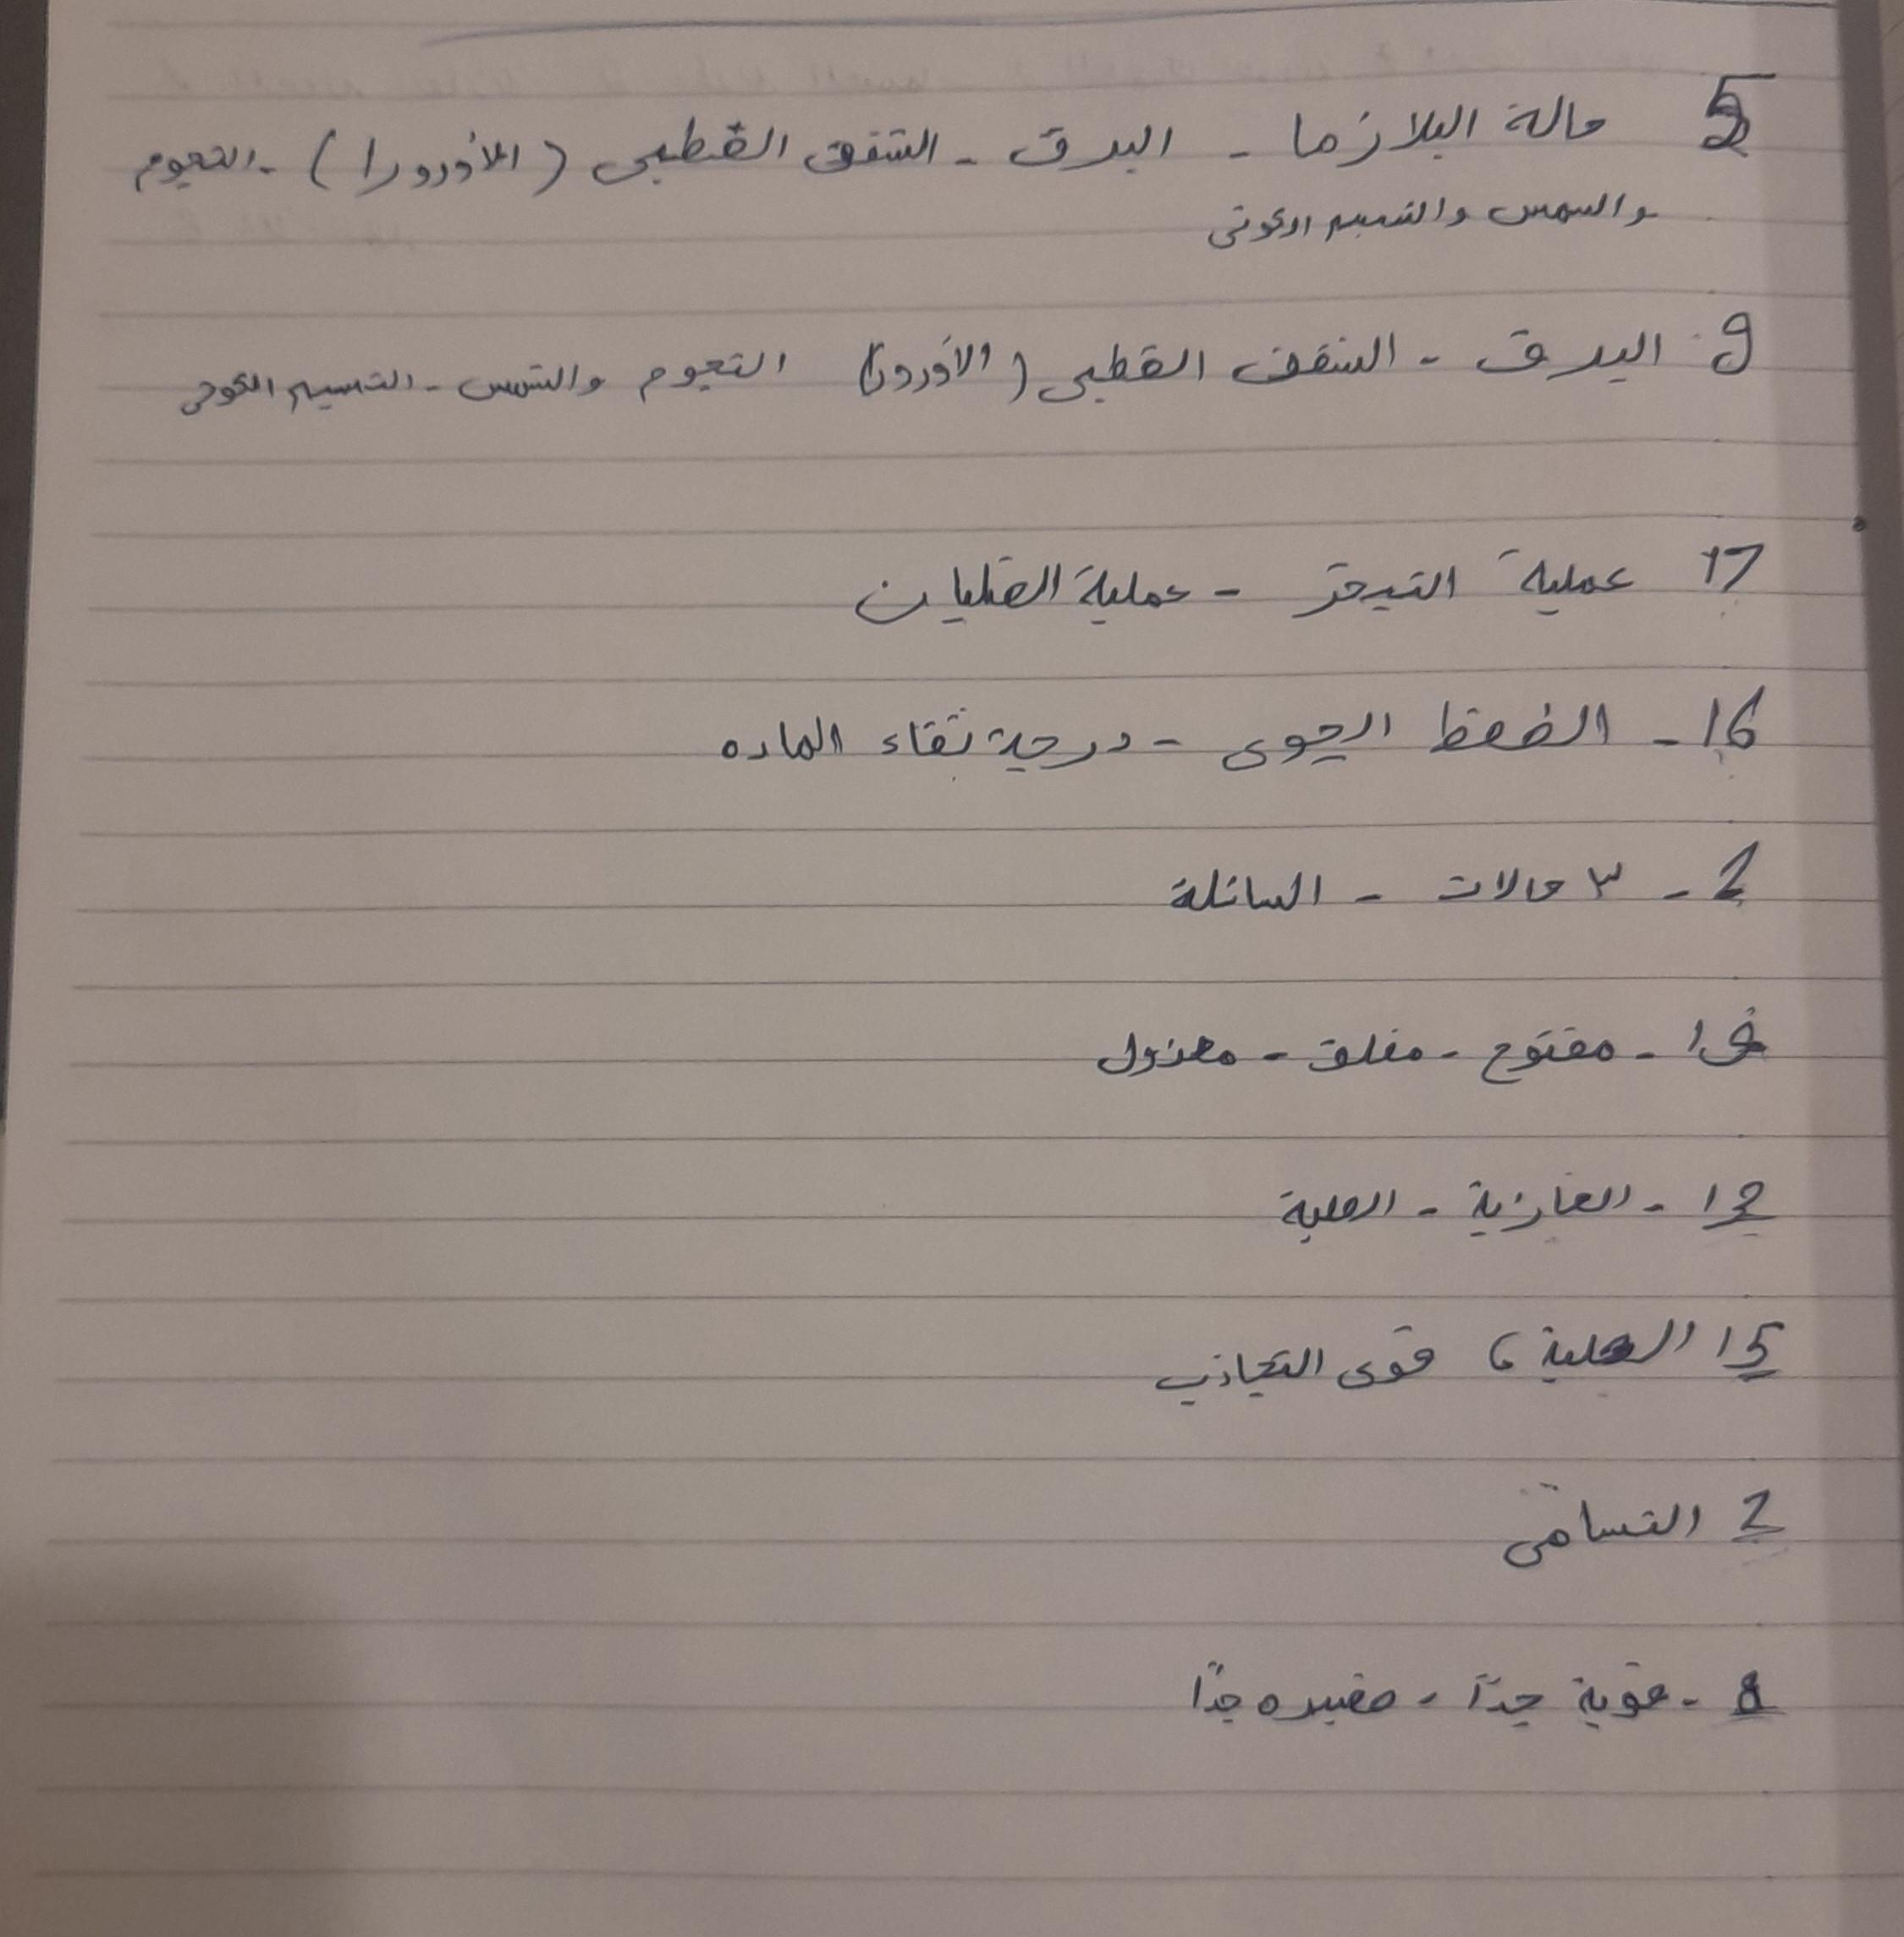 5 حالة البلازما - البرق - الشفق القطبى (الأورورا) - النجوم
والشمس والنسيج الكونى
9. البرق - الشفق القطبى (الأورورا) النجوم والشمس - النسيج الكونى
17 عملية التبخر - عملية الغليان
16 - الضغط الجوى - درجة نقاء الماده
2 - ٣ حالات - السائلة
- مفتوح - مغلق - معزول
12 - الغازية - الصلبة
15 الصلبة، قوى التجاذب
2 التسامى
8 - قوية جدًا - مقيده جدًا